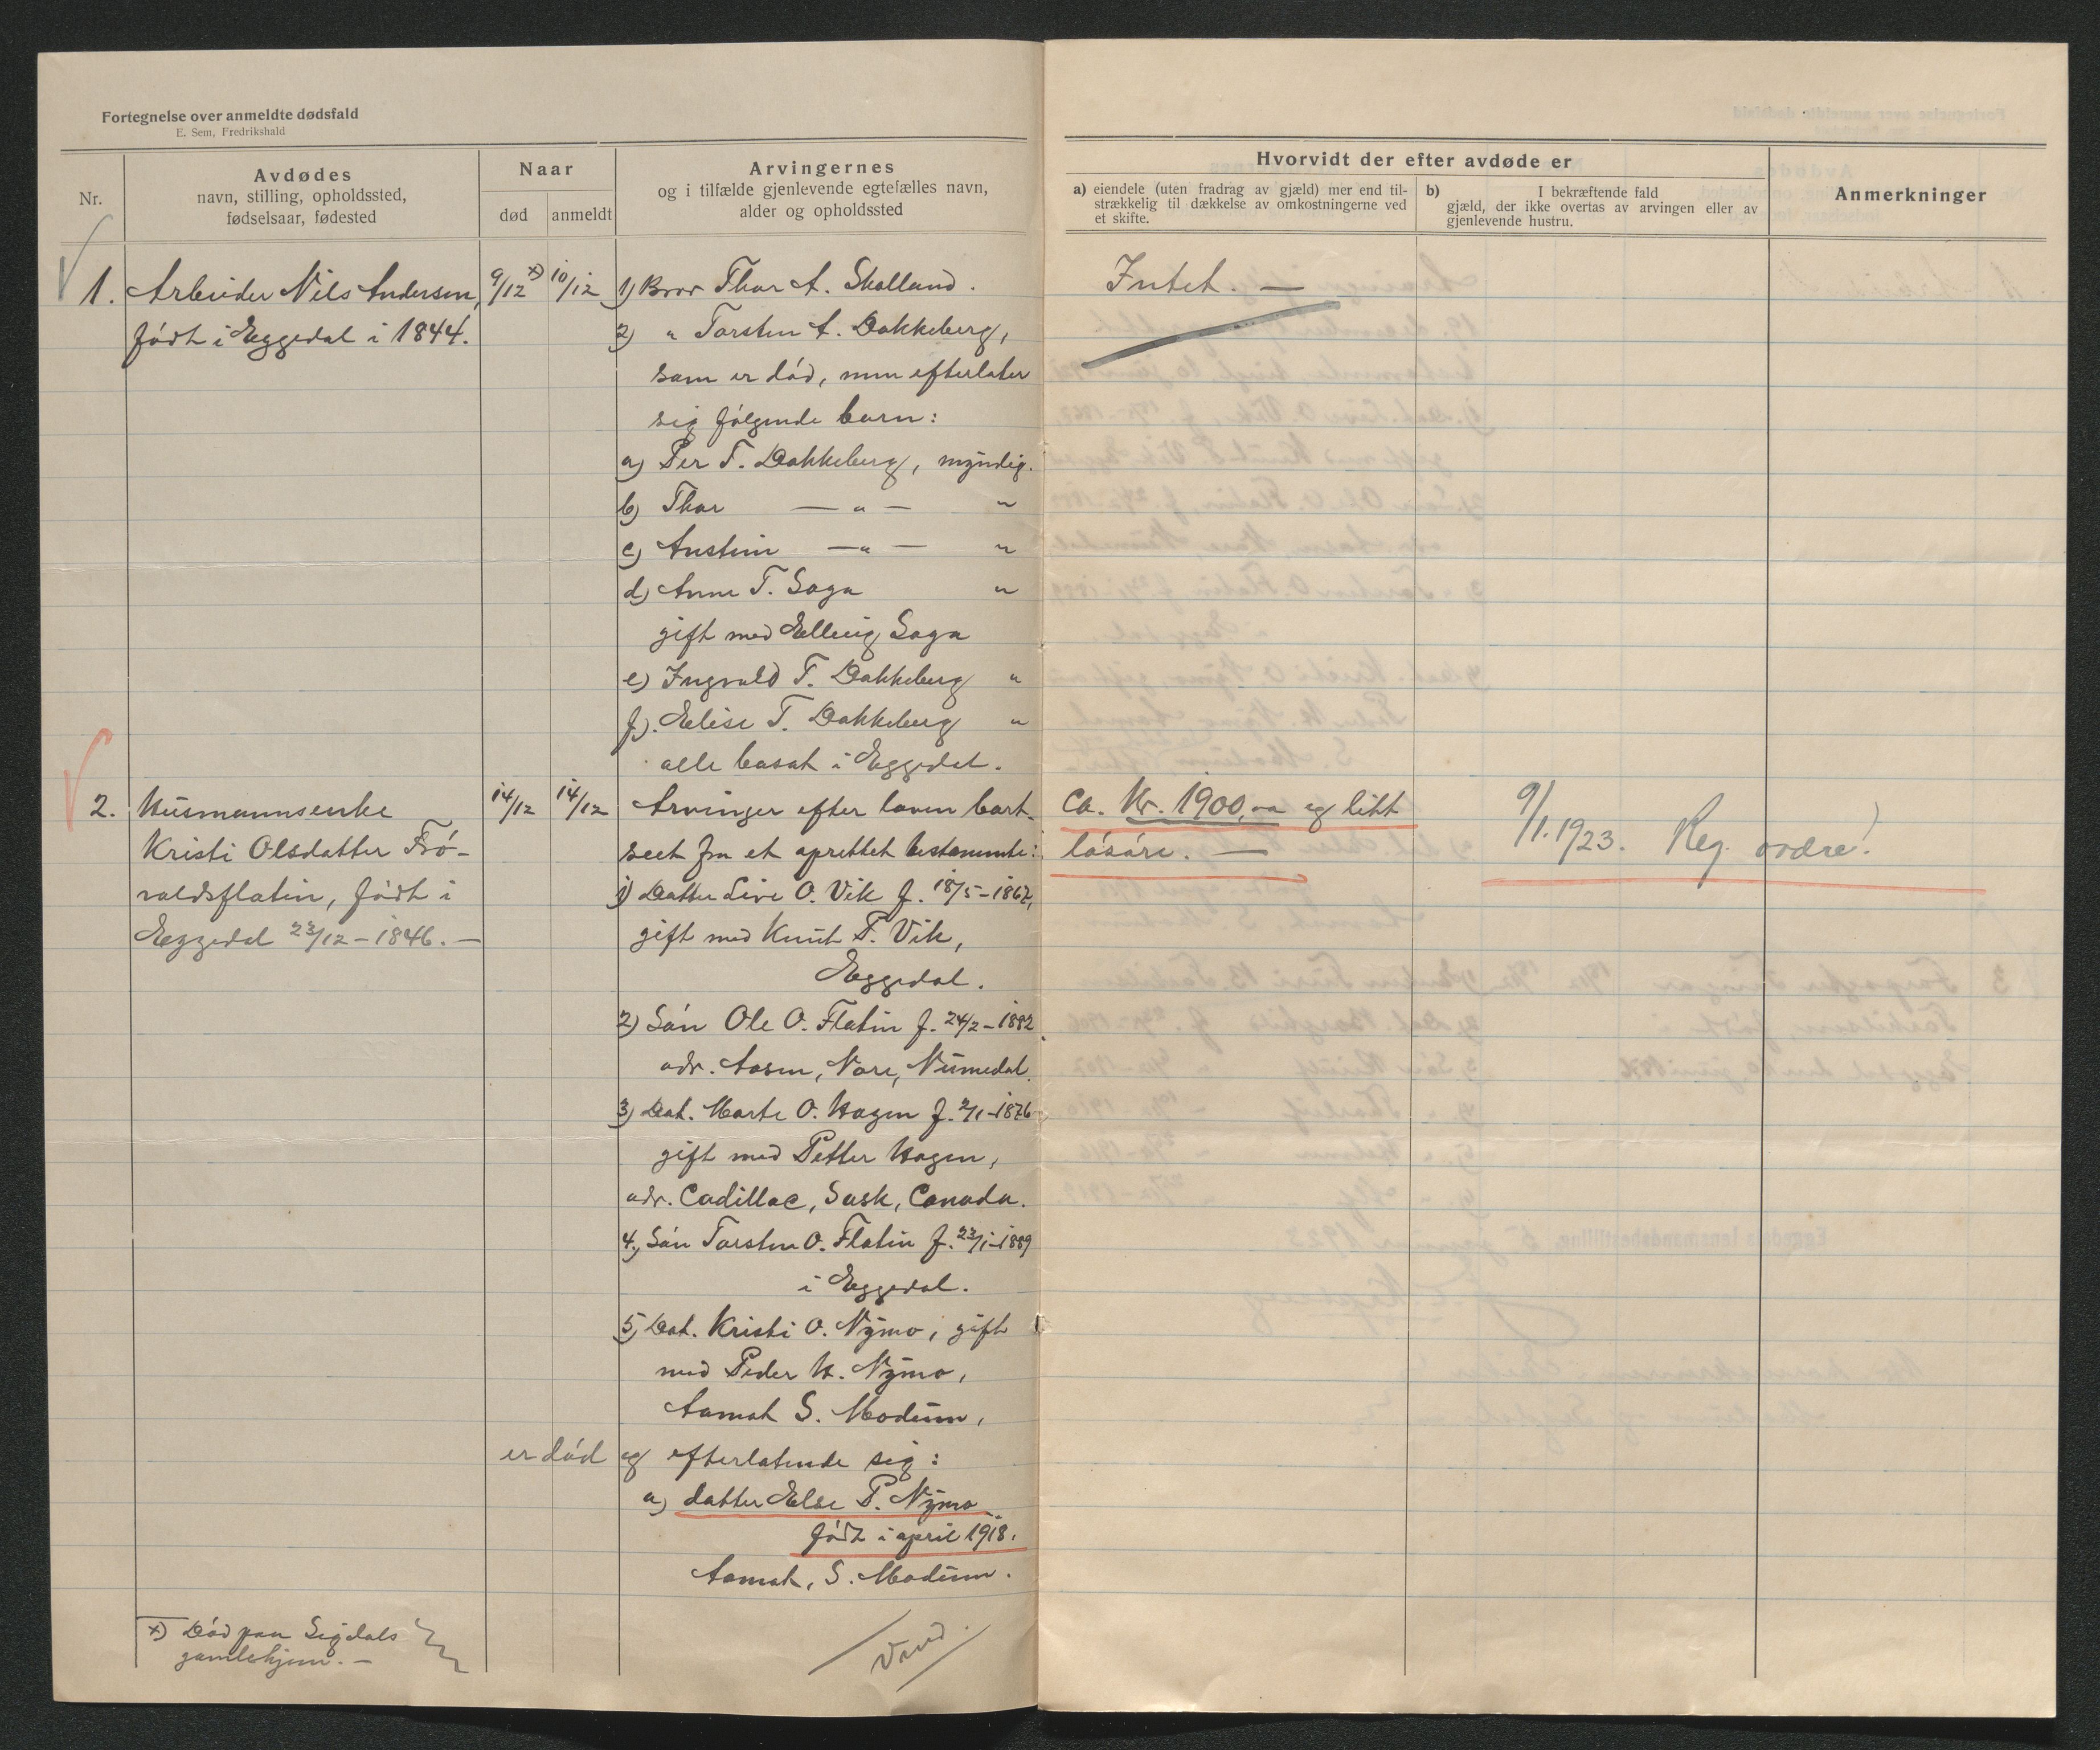 Fortegnelse over anmeldte dødsfald
E. Sem, Fredrikshald
Nr.
Avdødes
navn, stilling, opholdssted,
fødselsaar, fødested
Naar
død
anmeldt
Arvingernes
og i tilfælde gjenlevende egtefælles navn,
alder og opholdssted
Hvorvidt der efter avdøde er
a) eiendele (uten fradrag av gjæld) mer end til-
strækkelig til dækkelse av omkostningerne ved
et skifte.
b) I bekræftende fald
gjæld, der ikke overtas av arvingen eller av
gjenlevende hustru.
Anmerkninger
1. Arbeider Nils Andersen,
født i Eggedal i 1844.
9/12 x)
10/12
1) Bror Thor A. Skalland.
2) " Torsten A. Dokkeberg,
som er død, men efterlater
sig følgende barn:
a) Per T. Dokkeberg, myndig.
b) Thor — " — "
c) Austin — " — "
d) Anne T. Saga "
gift med Elling Saga
e) Ingvald T. Dokkeberg "
f) Elise T. Dokkeberg "
alle bosat i Eggedal.
Intet. —
2. Husmannsenke
Kristi Olsdatter Frø-
valdsflatin, født i
Eggedal 23/12 – 1846. —
14/12
14/12
Arvinger efter loven bort-
seet fra et oprettet testamente:
1) Datter Live O. Vik f. 18/5 – 1867,
gift med Knut T. Vik,
Eggedal.
2) Søn Ole O. Flatin f. 24/2 – 1882
adr. Aasen, Nore, Numedal.
3) Dat. Marte O. Hagen f. 2/1 – 1876
gift med Petter Hagen,
adr. Cadillac, Sask, Canada.
4) Søn Torsten O. Flatin f. 23/1 – 1889
i Eggedal.
5) Dat. Kristi O. Nymo, gift
med Peder H. Nymo,
Aamot S. Modum,
er død og efterlatende sig:
a) datter Else P. Nymo
født i april 1918.
Aamot, S. Modum.
Ca. Kr. 1900,00 og litt
løsøre. —
9/1. 1923. Reg. ordre!
x) Død paa Sigdals
gamlehjem. —
Vend.
Eggedals lensmandsbestilling,